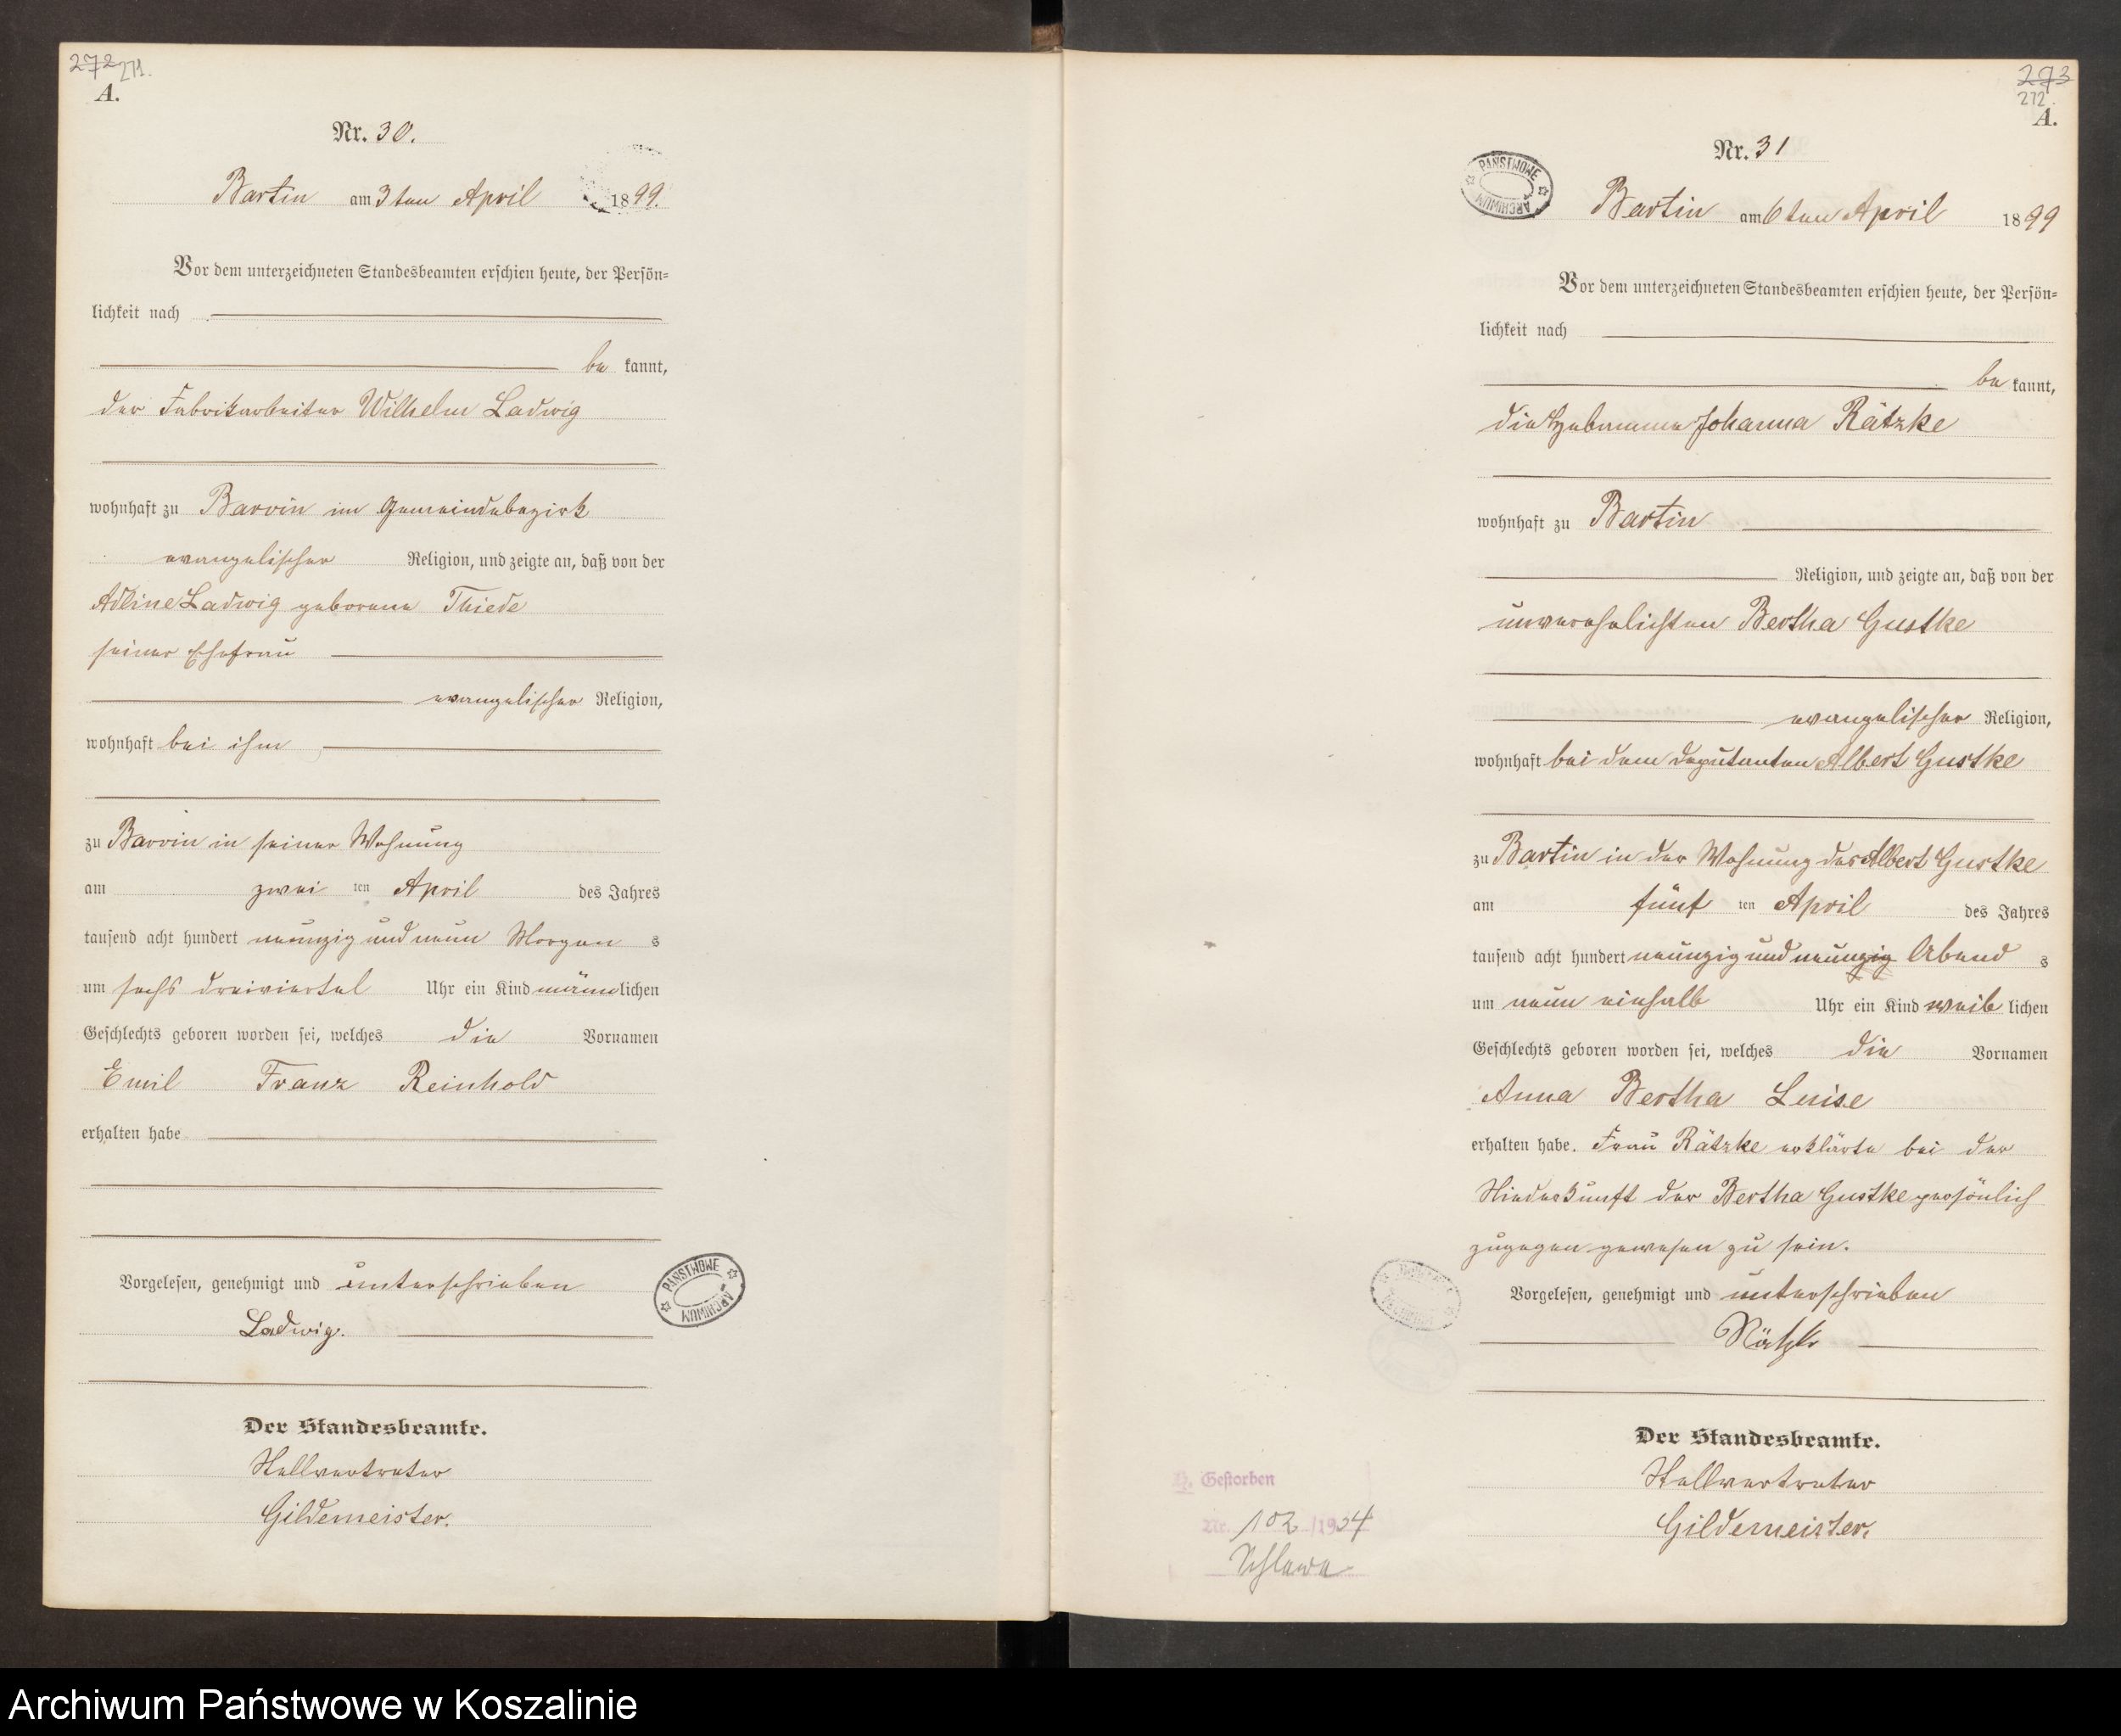 272 271.
A.
Nr. 30.
Bartin am 3ten April 1899.
Vor dem unterzeichneten Standesbeamten erschien heute, der Persön-
lichkeit nach
be kannt,
der Fabrikarbeiter Wilhelm Ladwig
wohnhaft zu Barvin im Gemeindebezirk
evangelischer Religion, und zeigte an, daß von der
Adline Ladwig geborene Thiede
seiner Ehefrau
evangelischer Religion,
wohnhaft bei ihm
zu Barvin in seiner Wohnung
am zwei ten April des Jahres
tausend acht hundert neunzig und neun Morgen s
um sechs dreiviertel Uhr ein Kind männlichen
Geschlechts geboren worden sei, welches die Vornamen
Emil Franz Reinhold
erhalten habe
Vorgelesen, genehmigt und unterschrieben
Ladwig.
PAŃSTWOWE ARCHIWUM
Der Standesbeamte.
Stellvertreter
Gildemeister.
273
272.
A.
Nr. 31
PAŃSTWOWE ARCHIWUM
Bartin am 6ten April 1899
Vor dem unterzeichneten Standesbeamten erschien heute, der Persön-
lichkeit nach
be kannt,
die Hebamme Johanna Rätzke
wohnhaft zu Bartin
Religion, und zeigte an, daß von der
unverehelichten Bertha Gustke
evangelischer Religion,
wohnhaft bei dem Deputanten Albert Gustke
zu Bartin in der Wohnung des Albert Gustke
am fünf ten April des Jahres
tausend acht hundert neunzig und neunzig Abend s
um neun einhalb Uhr ein Kind weib lichen
Geschlechts geboren worden sei, welches die Vornamen
Anna Bertha Luise
erhalten habe. Frau Rätzke erklärte bei der
Niederkunft der Bertha Gustke persönlich
zugegen gewesen zu sein.
Vorgelesen, genehmigt und unterschrieben
Rätzke
Der Standesbeamte.
Stellvertreter
Gildemeister.
Gestorben
Nr. 102 /1934
Schlawe
Archiwum Państwowe w Koszalinie